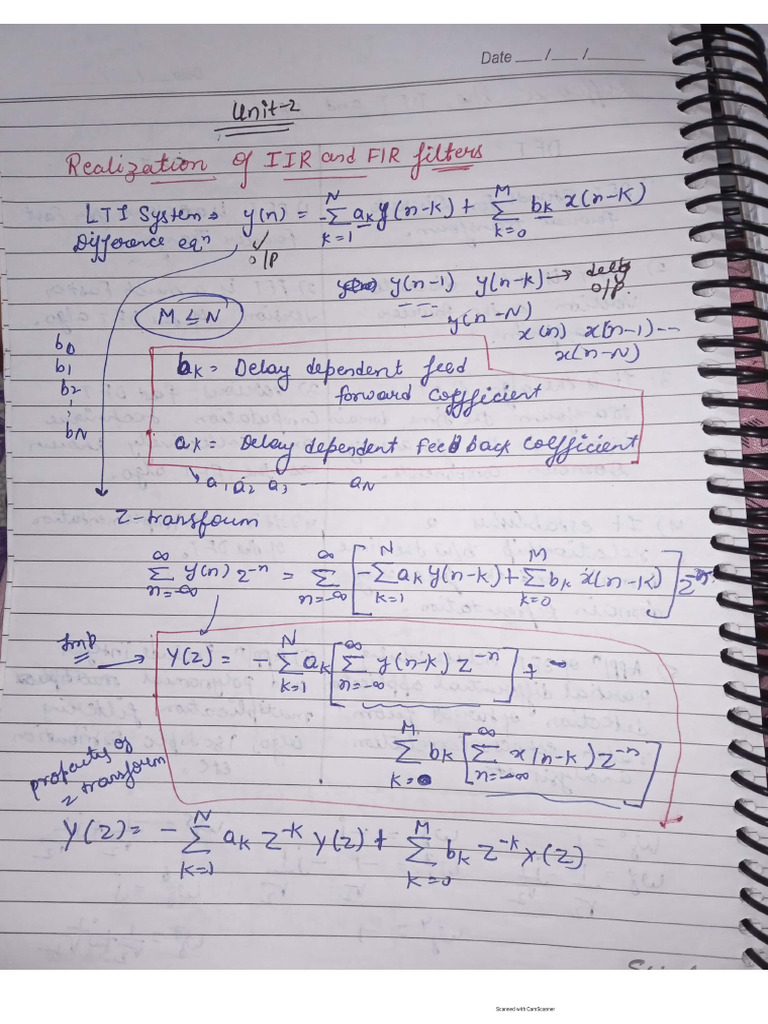 Date __/__/__
Unit-2
Realization of IIR and FIR filters
LTI System → y(n) = -∑_{k=1}^{N} a_k y(n-k) + ∑_{k=0}^{M} b_k x(n-k)
Difference eqⁿ
o/p
y(n-1) y(n-k) → delay o/p.
y(n-N)
M ≤ N
x(n) x(n-1) --
x(n-N)
b0
b1
b2
bN
b_k = Delay dependent feed
forward coefficient
a_k = Delay dependent feedback coefficient
a1 a2 a3 ---- aN
Z-transform
∑_{n=-∞}^{∞} y(n) z^{-n} = ∑_{n=-∞}^{∞} [-∑_{k=1}^{N} a_k y(n-k) + ∑_{k=0}^{M} b_k x(n-k)] z^{-n}
Imp → Y(z) = -∑_{k=1}^{N} a_k [∑_{n=-∞}^{∞} y(n-k) z^{-n}] +
∑_{k=0}^{M} b_k [∑_{n=-∞}^{∞} x(n-k) z^{-n}]
property of
z transform
Y(z) = -∑_{k=1}^{N} a_k z^{-k} Y(z) + ∑_{k=0}^{M} b_k z^{-k} X(z)
Scanned with CamScanner